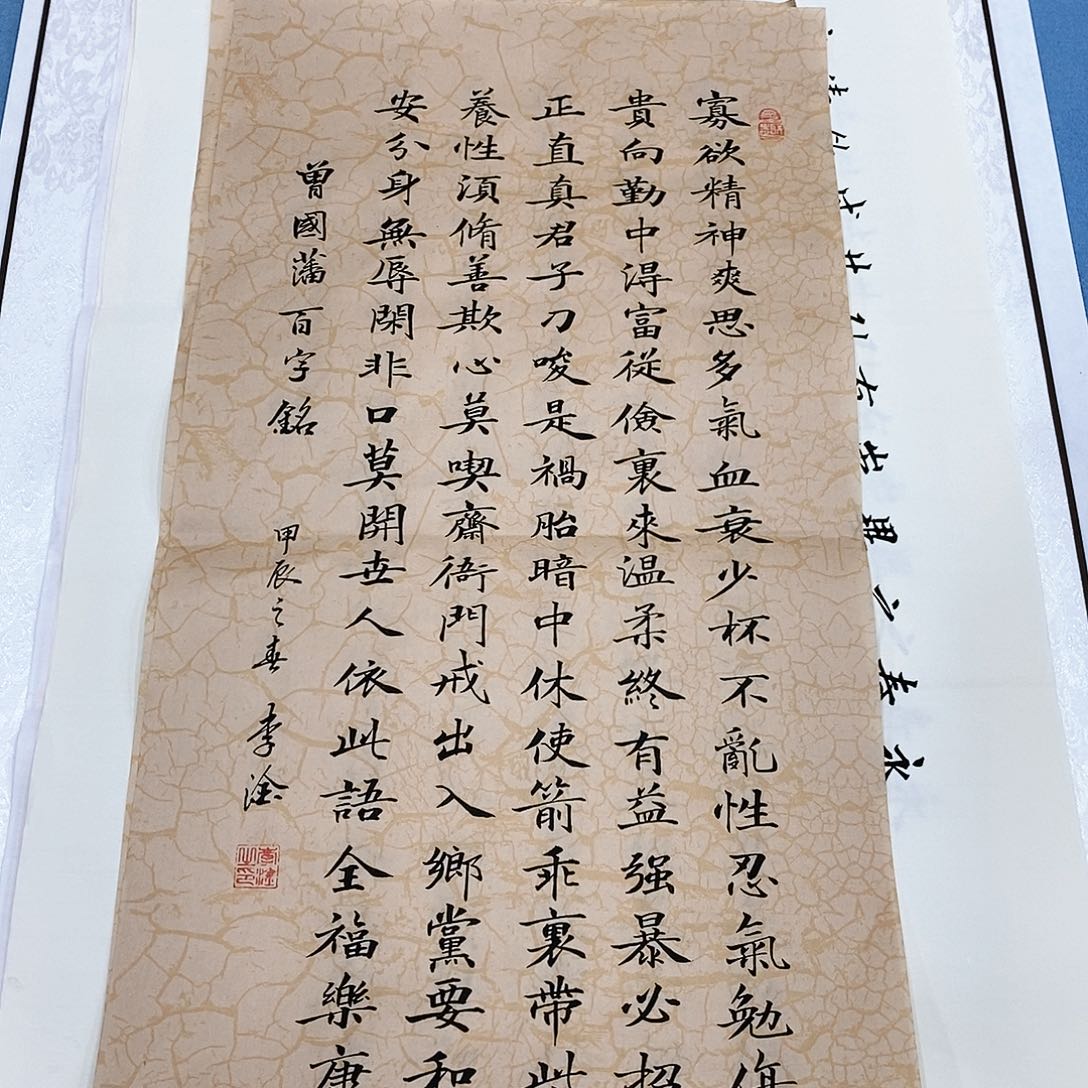 寡欲精神爽思多氣血衰少杯不亂性忍氣勉傷
貴向勤中得富從儉裏來温柔終有益强暴必招
正直真君子刀唆是禍胎暗中休使箭乖裏帶此
養性須脩善欺心莫喫齋衙門戒出入鄉黨要和
安分身無辱閑非口莫開世人依此語全福樂康
曾國藩百字銘
甲辰之春 李淦